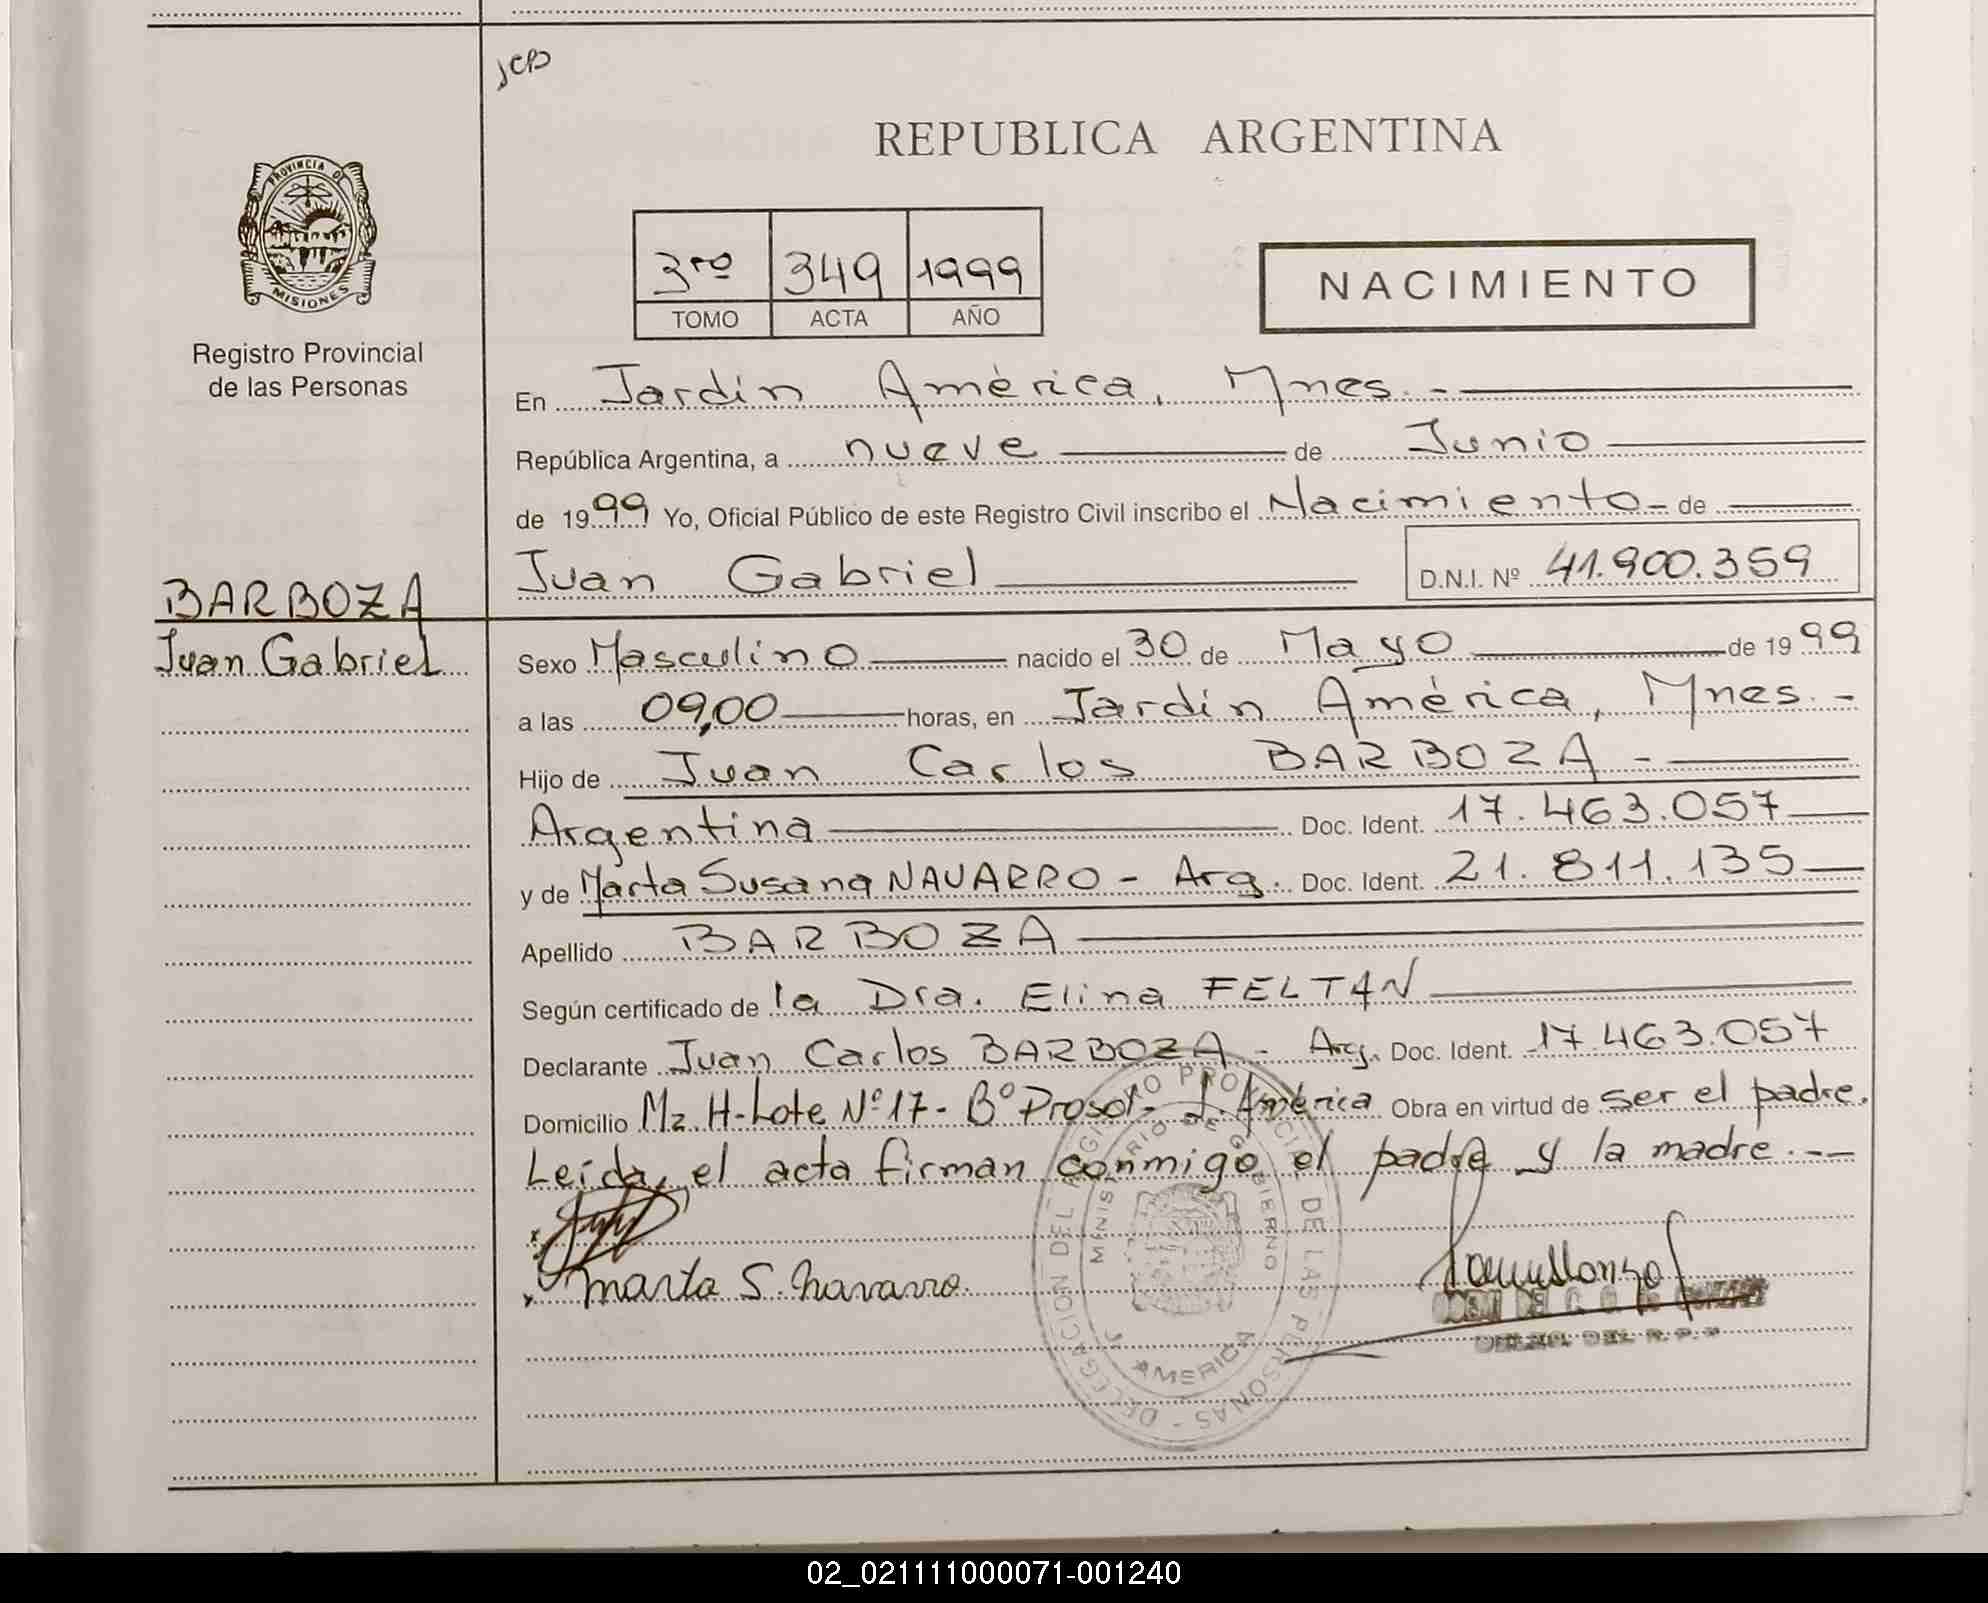 JCB
REPUBLICA ARGENTINA
PROVINCIA DE
MISIONES
Registro Provincial
de las Personas
3ro 349 1999
TOMO ACTA AÑO
NACIMIENTO
En Jardín América, Mnes.-
República Argentina, a nueve de Junio
de 1999 Yo, Oficial Público de este Registro Civil inscribo el Nacimiento- de
Juan Gabriel D.N.I. Nº 41.900.359
BARBOZA
Juan Gabriel
Sexo Masculino nacido el 30 de Mayo de 1999
a las 09,00 horas, en Jardín América, Mnes.-
Hijo de Juan Carlos BARBOZA -
Argentina Doc. Ident. 17.463.057
y de Marta Susana NAVARRO - Arg. Doc. Ident. 21.811.135
Apellido BARBOZA
Según certificado de la Dra. Elina FELTAN
Declarante Juan Carlos BARBOZA - Arg. Doc. Ident. 17.463.057
Domicilio Mz. H-Lote Nº17- Bº Prosol- J. América Obra en virtud de ser el padre.
Leída, el acta firman conmigo el padre y la madre.--
Marta S. Navarro.
DELEGACION DEL REGISTRO PROVINCIAL DE LAS PERSONAS -
MINISTERIO DE GOBIERNO
J. AMERICA
02_021111000071-001240